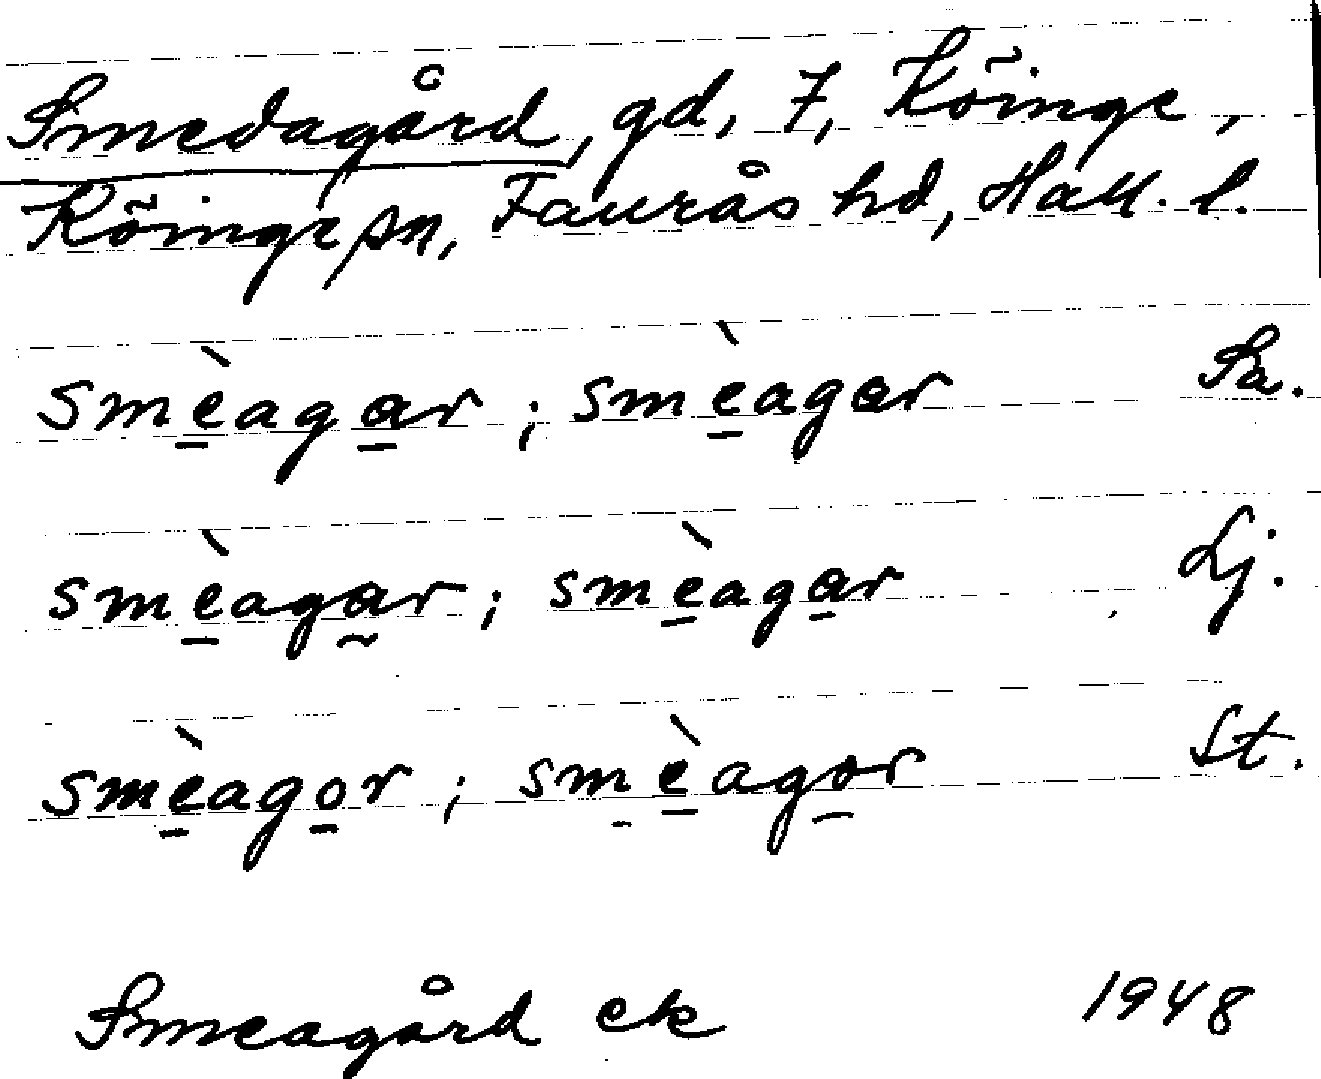 Smedagård, gd, 7, Köinge,
Köinge sn, Faurås hd, Hall. l.
smèagar ; smèagar Sa.
smèagar ; smèagar Lj.
smèagor ; smèagor St.
Smeagård ek 1948